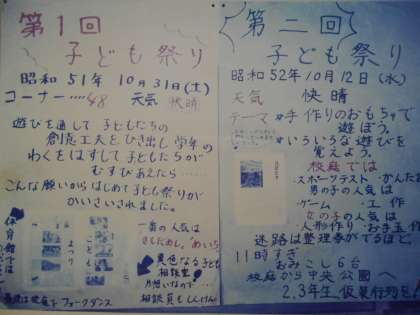 第1回
子ども祭り
昭和 51年 10月31日(土)
コーナー‥‥48 天気 快晴
遊びを通して子どもたちの
創意工夫をひき出し学年の
わくをはずして子どもたちが
むすびあえたら‥‥‥
こんな願いからはじめて子ども祭りが
かいさいされました。
体育館では
まつり
こども
一番の人気は
異色なる子ども
相談室
相談員もしんけん
最後は校庭でフォークダンス
第二回
子ども祭り
昭和52年10月12日(水)
天気 快晴
テーマ 手作りのおもちゃで
遊ぼう。
いろいろな遊びを
覚えよう。
校庭では
・スポーツテスト
男の子の人気は
・ゲーム ・工作
女の子の人気は
・人形作り・お手玉作
迷路は整理券がでるほど
11時すぎ
おみこし6台
校庭から中央公園へ
2.3年生 仮装行列も